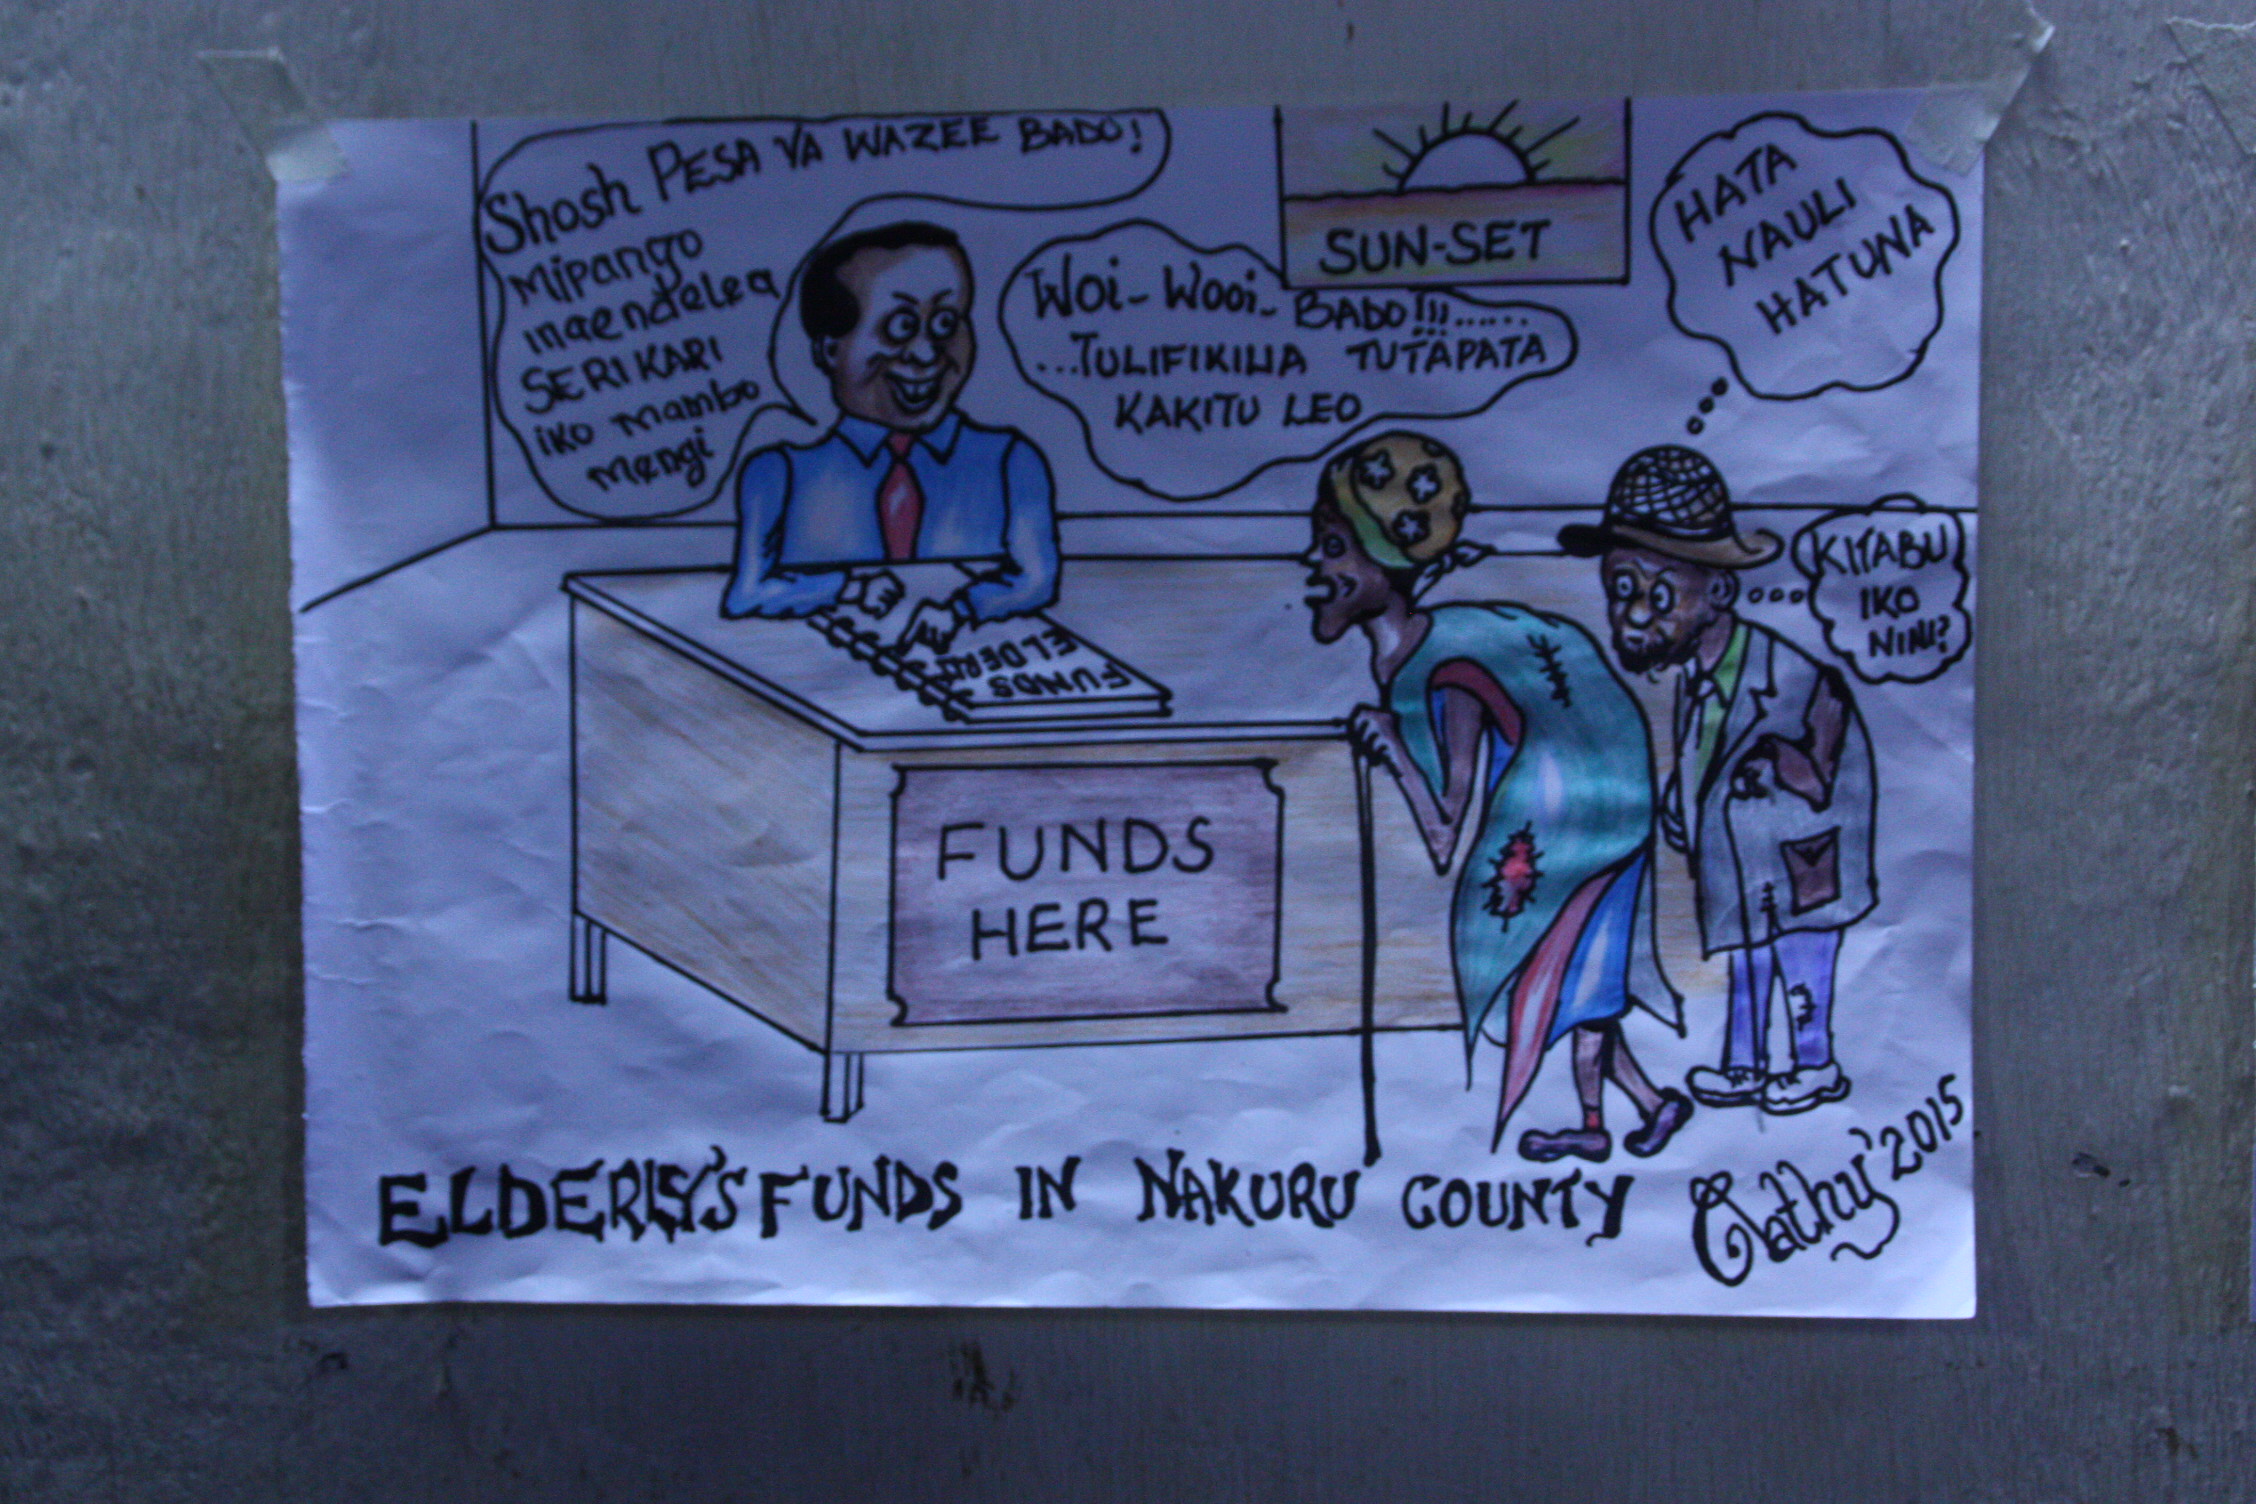 Shosh PESA YA WAZEE BADO!
Mipango
inaendelea
SERIKARI
iko mambo
mengi
SUN-SET
WOI- WOOI- BADO!!!......
...TULIFIKILIA TUTAPATA
KAKITU LEO
HATA
NAULI
HATUNA
KITABU
IKO
NINI?
FUNDS
ELDERLY
FUNDS
HERE
ELDERLSY'S FUNDS IN NAKURU COUNTY
Cathy' 2015